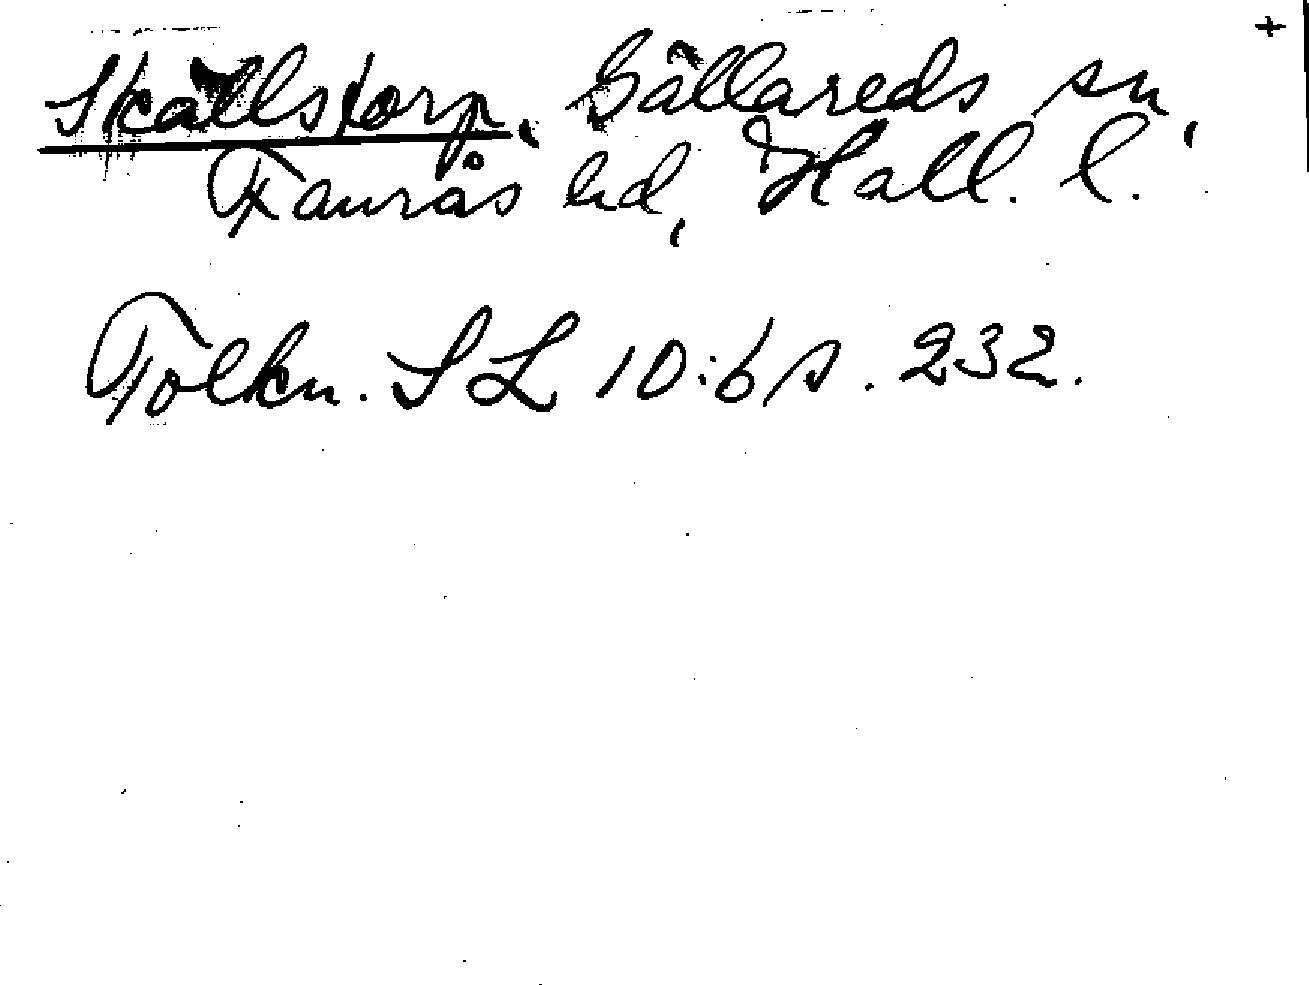 +
Skällstorp, Gällareds sn,
Faurås hd, Hall. l.
Tolkn. SL 10:6 s. 232.